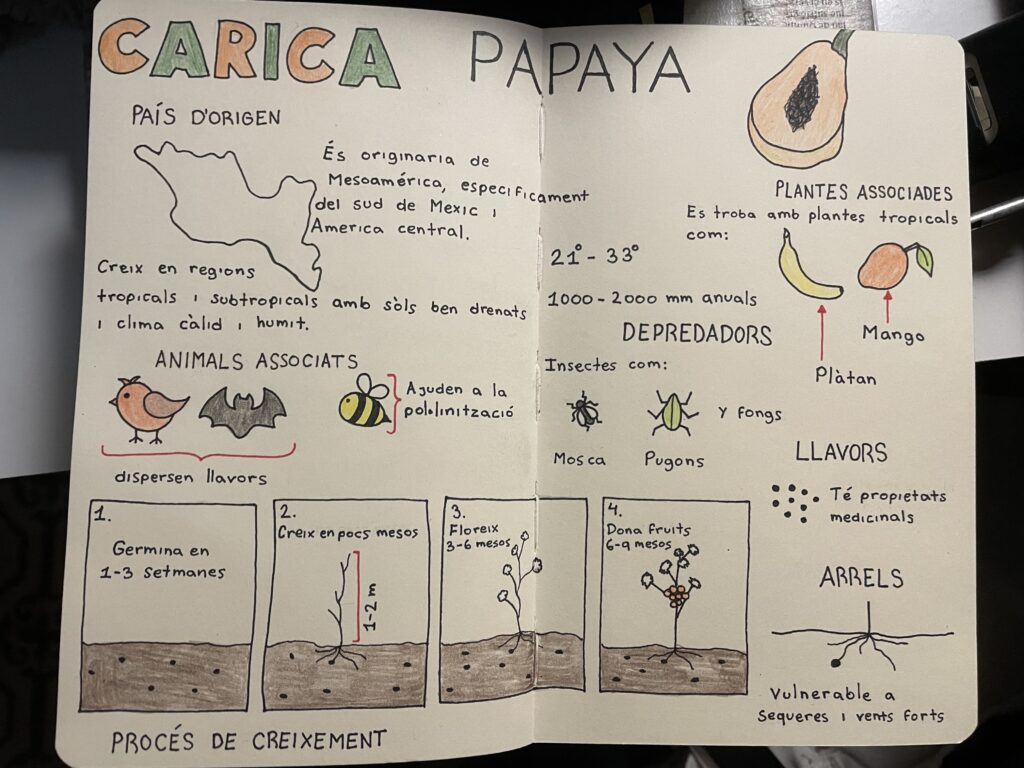 CARICA PAPAYA
PAÍS D'ORIGEN
És originaria de
Mesoamérica, especificament
del sud de Mexic i
America central.
Creix en regions
tropicals i subtropicals amb sòls ben drenats
i clima càlid i humit.
ANIMALS ASSOCIATS
dispersen llavors
Ajuden a la
pol·linització
21° - 33°
1000 - 2000 mm anuals
DEPREDADORS
Insectes com:
Mosca
Pugons
Y fongs
PLANTES ASSOCIADES
Es troba amb plantes tropicals
com:
Plàtan
Mango
LLAVORS
Té propietats
medicinals
ARRELS
Vulnerable a
Sequeres i vents forts
1.
Germina en
1-3 setmanes
2.
Creix en pocs mesos
1-2 m
3.
Floreix
3-6 mesos
4.
Dona fruits
6-9 mesos
PROCÉS DE CREIXEMENT